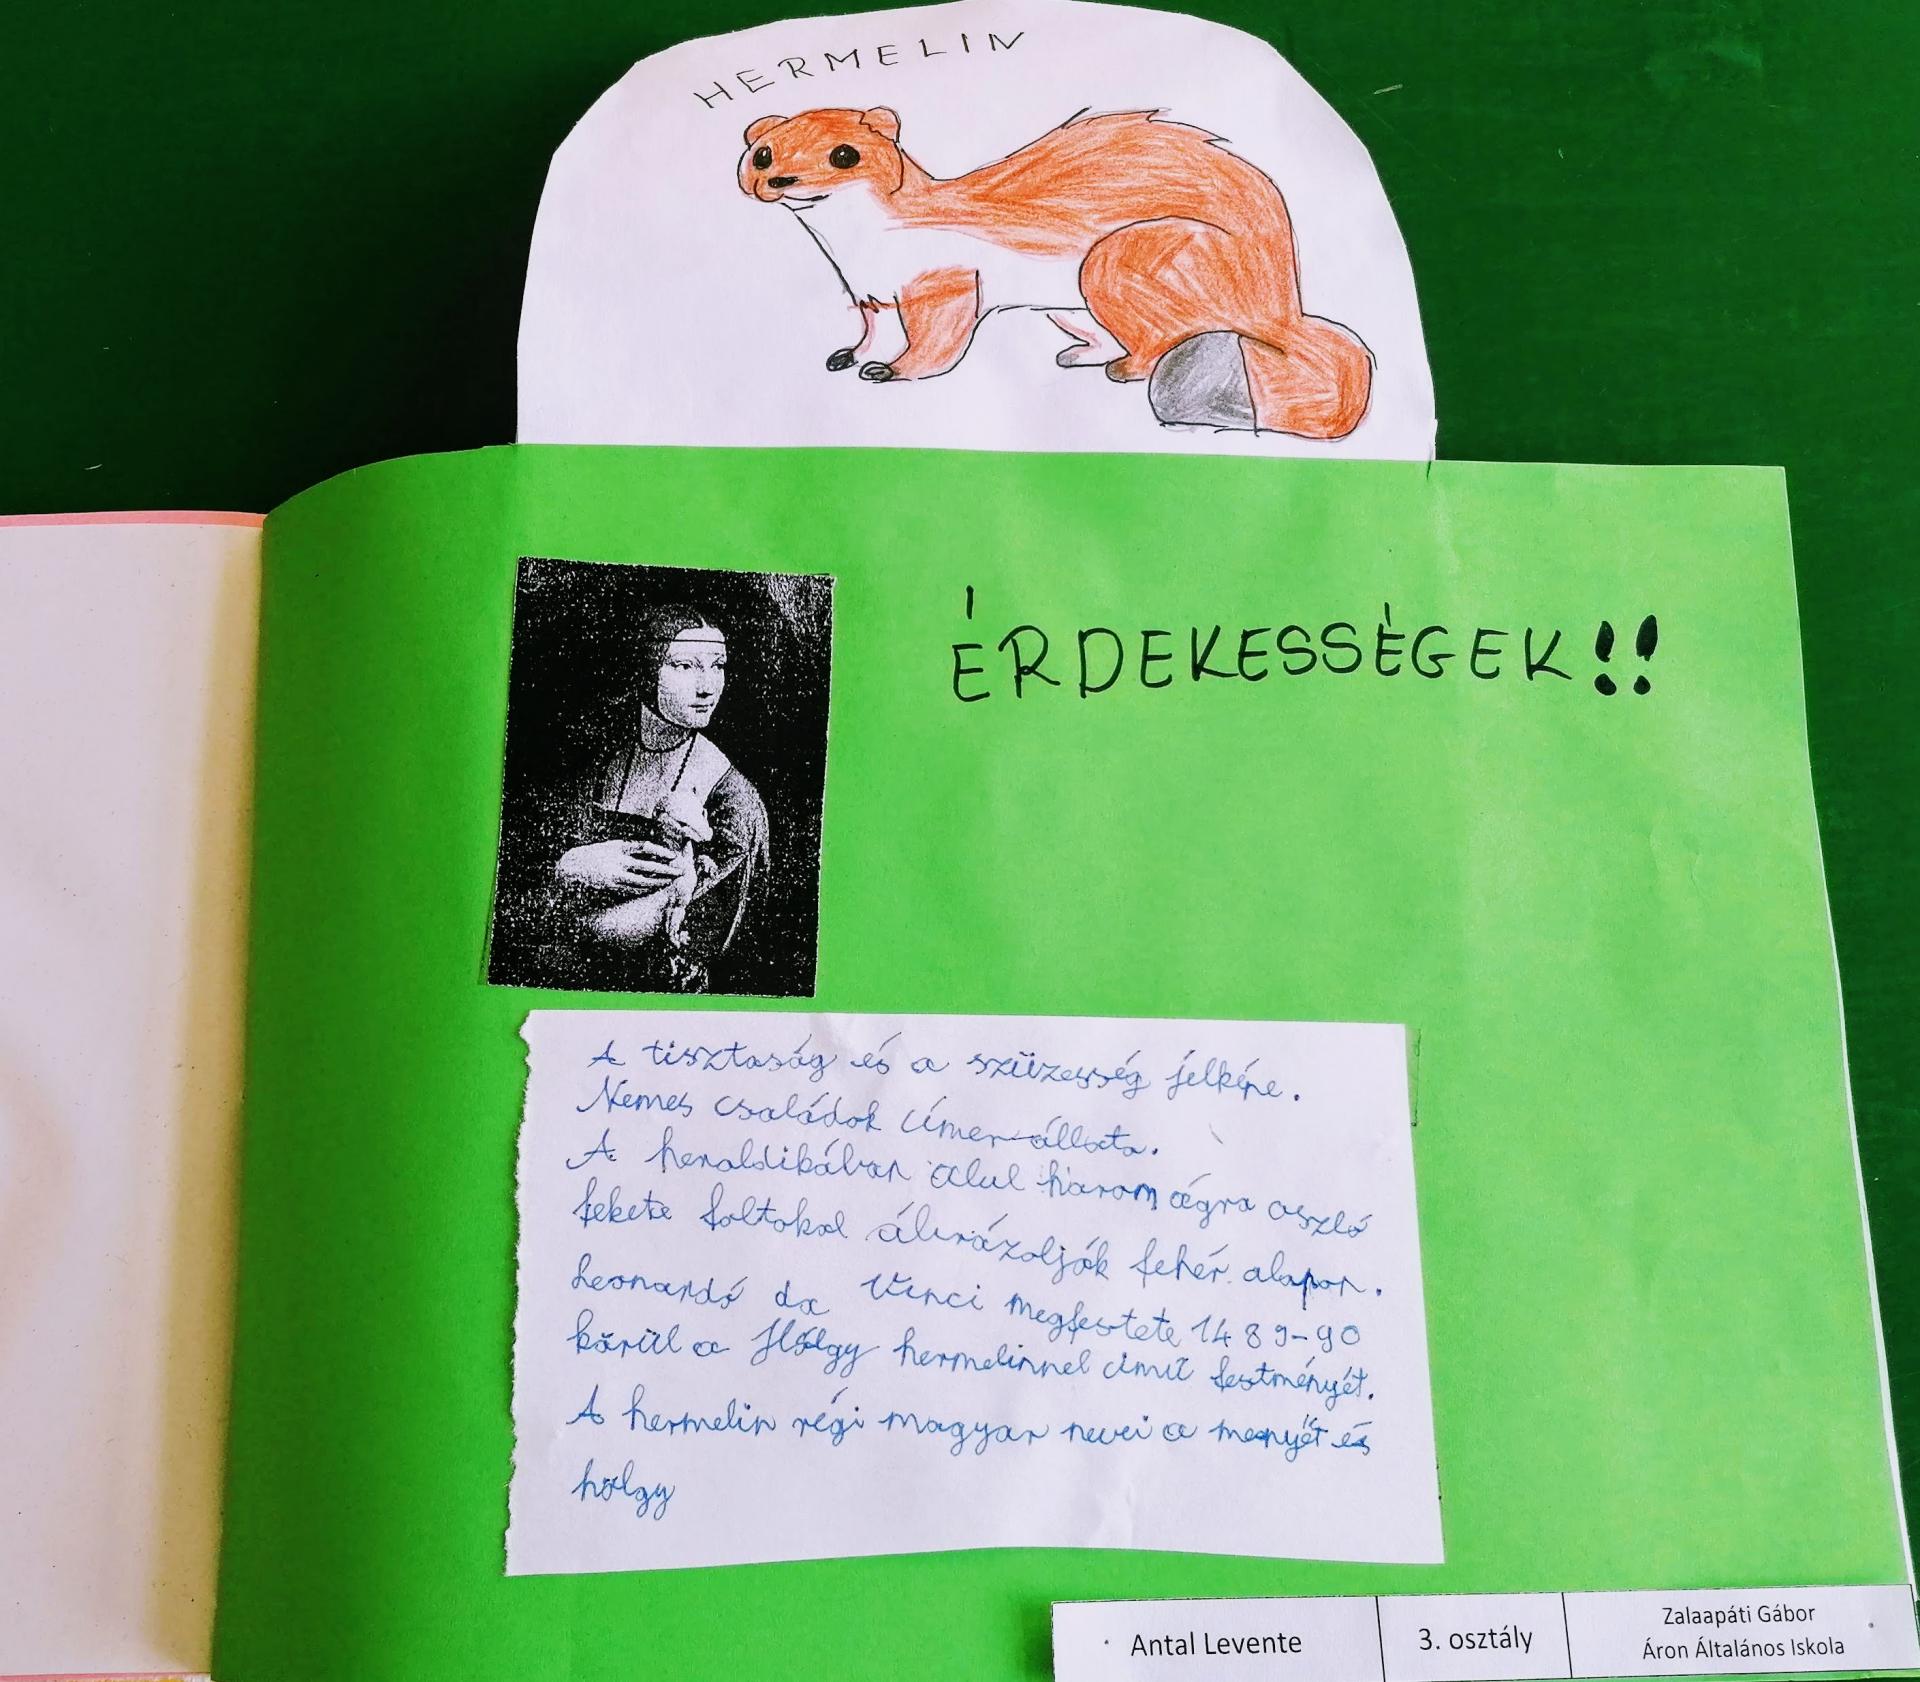 HERMELIN
ÉRDEKESSÉGEK!!
A tisztaság és a szüzesség jelképe.
Nemes családok címer állata.
A heraldikában alul három ágra oszló
fekete foltokal ábrázolják fehér alapon.
Leonardó da Vinci megfestete 1489-90
körül a Hölgy hermelinnel című festményét.
A hermelin régi magyar nevei a menyét és
hölgy
Antal Levente
3. osztály
Zalaapáti Gábor
Áron Általános Iskola